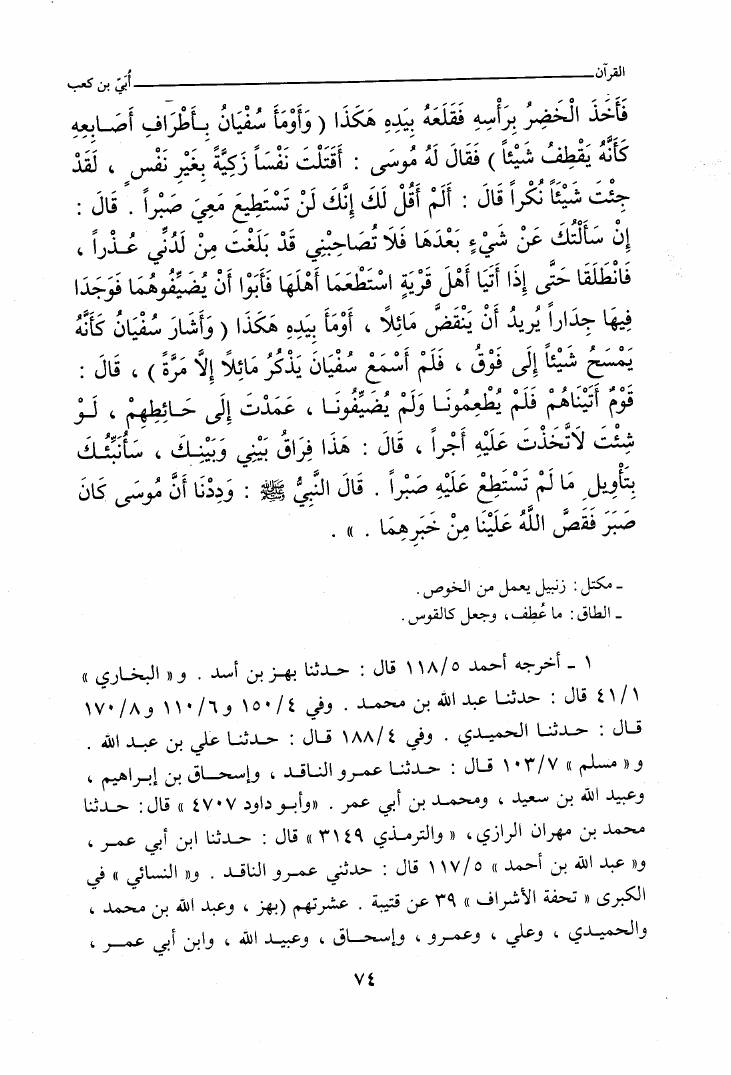 القرآن ــــــــــــــــــــ أُبَيّ بن كعب
فَأَخَذَ الْخَضِرُ بِرَأْسِهِ فَقَلَعَهُ بِيَدِهِ هَكَذَا ( وَأَوْمَأَ سُفْيَانُ بِـأَطْرَافِ أَصَـابِعِهِ
كَأَنَّهُ يَقْطِفُ شَيْئاً ) فَقَالَ لَهُ مُوسَى : أَقَتَلْتَ نَفْساً زَكِيَّةً بِغَيْرِ نَفْسٍ ، لَقَدْ
جِئْتَ شَيْئاً نُكْراً قَالَ : أَلَمْ أَقُلْ لَكَ إِنَّكَ لَنْ تَسْتَطِيعَ مَعِيَ صَبْراً . قَالَ :
إِنْ سَأَلْتُكَ عَنْ شَيْءٍ بَعْدَهَا فَلَا تُصَاحِبْنِي قَدْ بَلَغْتَ مِنْ لَدُنِّي عُـذْراً ،
فَانْطَلَقَا حَتَّى إِذَا أَتَيَا أَهْلَ قَرْيَةٍ اسْتَطْعَمَا أَهْلَهَا فَأَبَوْا أَنْ يُضَيِّفُوهُمَا فَوَجَدَا
فِيهَا جِدَاراً يُرِيدُ أَنْ يَنْقَضَّ مَائِلاً ، أَوْمَأَ بِيَدِهِ هَكَذَا ( وَأَشَارَ سُفْيَانُ كَأَنَّهُ
يَمْسَحُ شَيْئاً إِلَى فَوْقُ ، فَلَمْ أَسْمَعْ سُفْيَانَ يَذْكُرُ مَائِلاً إِلاَّ مَرَّةً ) ، قَالَ :
قَوْمٌ أَتَيْنَاهُمْ فَلَمْ يُطْعِمُونَـا وَلَمْ يُضَيِّفُونَـا ، عَمَدْتَ إِلَى حَـائِطِهِمْ ، لَـوْ
شِئْتَ لاَتَّخَذْتَ عَلَيْهِ أَجْراً ، قَالَ : هَذَا فِرَاقُ بَيْنِي وَبَيْنِـكَ ، سَأُنَبِّئُـكَ
بِتَأْوِيلِ مَا لَمْ تَسْتَطِعْ عَلَيْهِ صَبْراً . قَالَ النَّبِيُّ ﷺ : وَدِدْنَا أَنَّ مُوسَى كَانَ
صَبَرَ فَقَصَّ اللَّهُ عَلَيْنَا مِنْ خَبَرِهِمَا . » .
ـ مكتل : زنبيل يعمل من الخوص .
ـ الطاق : ما عُطِف ، وجعل كالقوس .
١ ـ أخرجه أحمد ١١٨/٥ قال : حـدثنا بهـز بن أسد . و « البخـاري »
٤١/١ قال : حدثنـا عبد الله بن محمـد . وفي ١٥٠/٤ و ١١٠/٦ و ١٧٠/٨
قـال : حـدثنـا الحميـدي . وفي ١٨٨/٤ قـال : حـدثنـا علي بن عبـد الله .
و « مسلم » ١٠٣/٧ قـال : حـدثنـا عمـرو النـاقـد ، وإسحـاق بن إبـراهيم ،
وعبيد الله بن سعيد ، ومحمـد بن أبي عمر . «وأبـو داود ٤٧٠٧ » قال : حـدثنا
محمـد بن مهران الرازي ، « والترمـذي ٣١٤٩ » قال : حـدثنا ابن أبي عمـر ،
و« عبد الله بن أحمد » ١١٧/٥ قال : حدثني عمـرو الناقـد . و« النسائي » في
الكبرى « تحفة الأشراف » ٣٩ عن قتيبة . عشرتهم (بهز ، وعبد الله بن محمد ،
والحميـدي ، وعلي ، وعمـرو ، وإسحـاق ، وعبيـد الله ، وابن أبي عمـر ،
٧٤